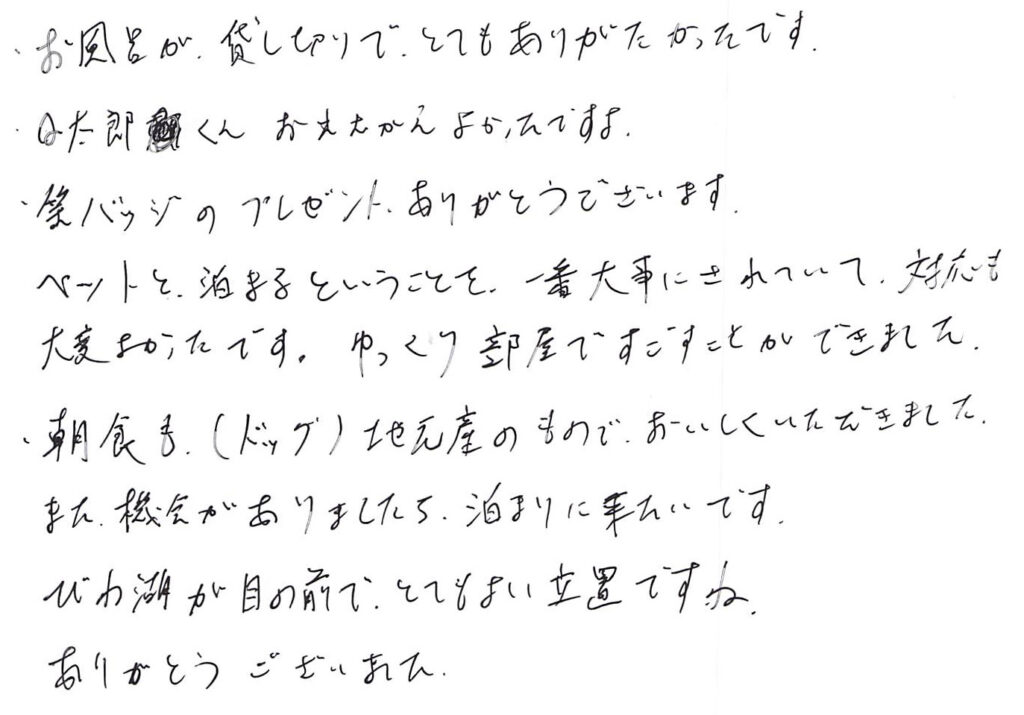 ・お風呂が、貸し切りで、とてもありがたかったです。
・Q太郎くん おええかんよかったですよ。
・缶バッジのプレゼント、ありがとうございます。
ペットと、泊まるということを、一番大事にされていて、対応も
大変よかったです。ゆっくり部屋ですごすことができました。
・朝食も、(ドッグ)地元産のもので、おいしくいただきました。
また、機会がありましたら、泊まりに来たいです。
びわ湖が目の前で、とてもよい立置ですね。
ありがとうございました。